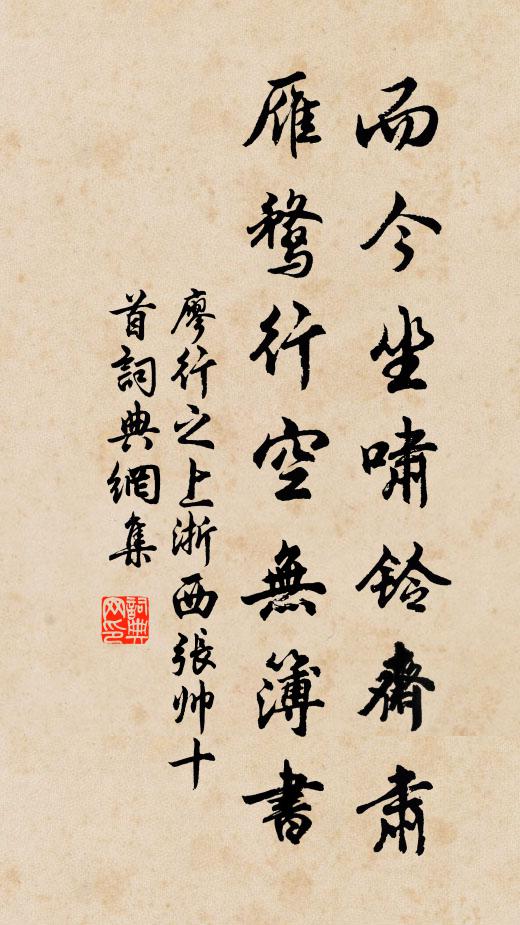 而今坐啸铃齋肅
雁鹜行空無簿書
廖行之上浙西張帅十
首詞典網集
詞典网印